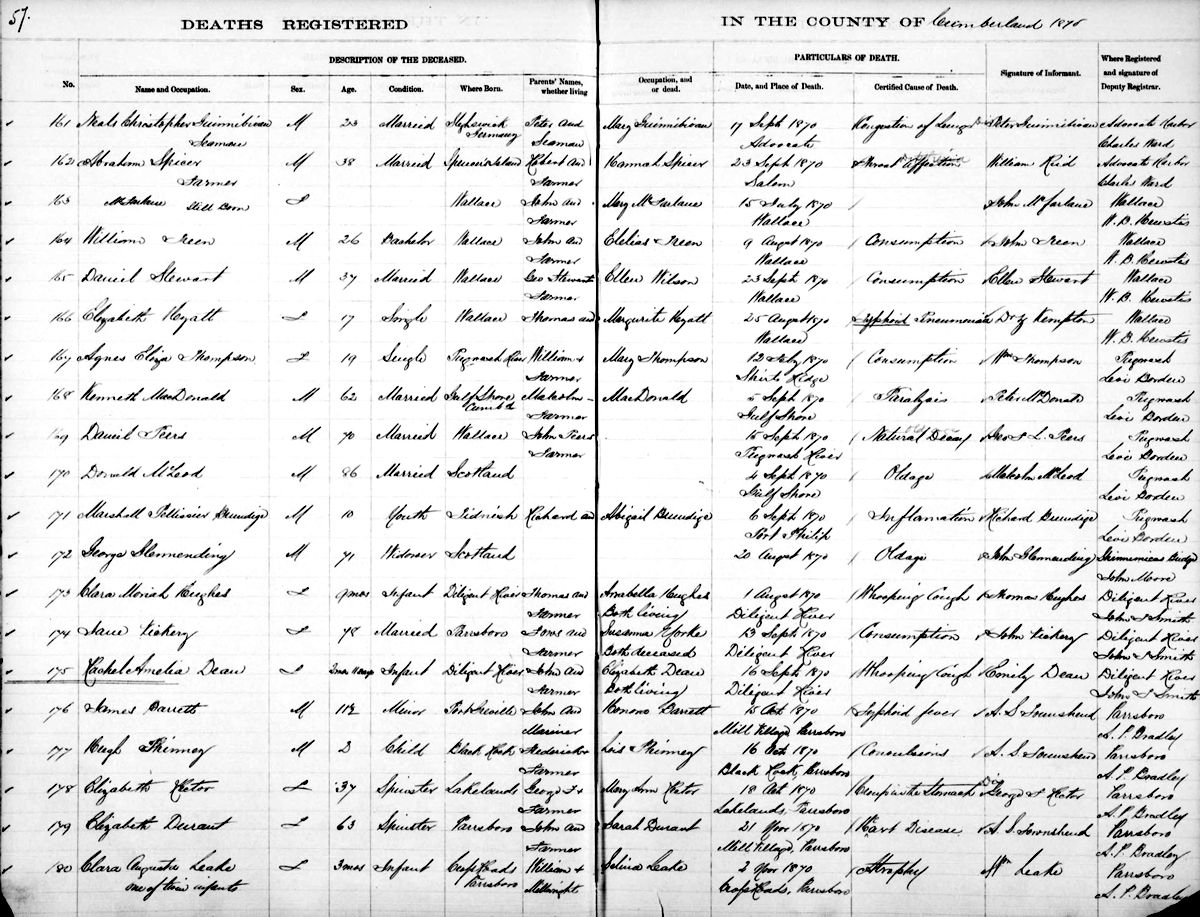 57.
DEATHS REGISTERED IN THE COUNTY OF Cumberland 1870
DESCRIPTION OF THE DECEASED. PARTICULARS OF DEATH.
No. Name and Occupation. Sex. Age. Condition. Where Born. Parents' Names, whether living Occupation, and or dead. Date, and Place of Death. Certified Cause of Death. Signature of Informant. Where Registered and signature of Deputy Registrar.
161 Neals Christopher M 23 Married Peter and Mary 17 Sept 1870 Congestion of Lungs Peter Advocate Harbor
Seaman Germany Seaman Advocate Charles Ward
162 Abraham Spicer M 38 Married Spencers Island Robert and Hannah Spicer 23 Sept 1870 Throat Affection William Reid Advocate Harbor
Farmer Farmer Salem Charles Ward
163 McFarlane Still Born F Wallace John and Mary McFarlane 15 July 1870 John McFarlane Wallace
Farmer Wallace W. B.
164 William Treen M 26 Bachelor Wallace John and Treen 9 August 1870 Consumption John Treen Wallace
Farmer Wallace W. B.
165 Daniel Stewart M 37 Married Wallace Geo Stewart Ellen Wilson 23 Sept 1870 Consumption Ellen Stewart Wallace
Farmer Wallace W. B.
166 Elizabeth Hyatt F 17 Single Wallace Thomas and Margurite Hyatt 25 August 1870 Typhoid Pneumonia Dr Kempton Wallace
Wallace W. B.
167 Agnes Eliza Thompson F 19 Single Pugwash River William & Mary Thompson 12 July 1870 Consumption Wm Thompson Pugwash
Farmer Ridge Levi Borden
168 Kenneth MacDonald M 62 Married Gulf Shore Malcolm MacDonald 5 Sept 1870 Paralysis Peter McDonald Pugwash
Cumb'd Farmer Gulf Shore Levi Borden
169 Daniel Peers M 70 Married Wallace John Peers 15 Sept 1870 Natural Decay L. Peers Pugwash
Farmer Pugwash River Levi Borden
170 Donald McLeod M 86 Married Scotland 4 Sept 1870 Oldage Malcolm McLeod Pugwash
Gulf Shore Levi Borden
171 Marshall Brundige M 10 Youth Tidnish Richard and Abigail Brundige 6 Sept 1870 Inflamation Richard Brundige Pugwash
Port Philip Levi Borden
172 George M 71 Widower Scotland 20 August 1870 Oldage John Bridge
John Moore
173 Clara Moriah Hughes F 9 mos Infant Diligent River Thomas and Anabella Hughes 1 August 1870 Whooping Cough Thomas Hughes Diligent River
Farmer Both living Diligent River John T Smith
174 Jane Vickery F 78 Married Parrsboro and Susanna Yorke 13 Sept 1870 Consumption John Vickery Diligent River
Farmer Both deceased Diligent River John T Smith
175 Rachel Amelia Dean F Infant Diligent River John and Elizabeth Dean 16 Sept 1870 Whooping Cough Emily Dean Diligent River
Farmer Both living Diligent River John T Smith
176 James Barrett M 11½ Minor Port Greville John and Barrett 15 Oct 1870 Typhoid fever A. S Townshend Parrsboro
Mariner Mill Village, Parrsboro A. P. Bradley
177 Hugh Phinney M 2 Child Black Rock Frederick & Lois Phinney 16 Oct 1870 Convulsions A. S Townshend Parrsboro
Farmer Black Rock, Parrsboro A. P. Bradley
178 Elizabeth F 37 Spinster Lakelands George & Mary Ann 18 Oct 1870 Stomach George Parrsboro
Farmer Lakelands, Parrsboro A. P. Bradley
179 Elizabeth Durant F 63 Spinster Parrsboro John and Sarah Durant 21 Nov 1870 Heart Disease A. S Townshend Parrsboro
Farmer Mill Village, Parrsboro A. P. Bradley
180 Clara Augusta Leake F 3 mos Infant Cross Roads William & Selina Leake 2 Nov 1870 Atrophy Wm Leake Parrsboro
one of twin infants Parrsboro Millwright Cross Roads, Parrsboro A. P. Bradley